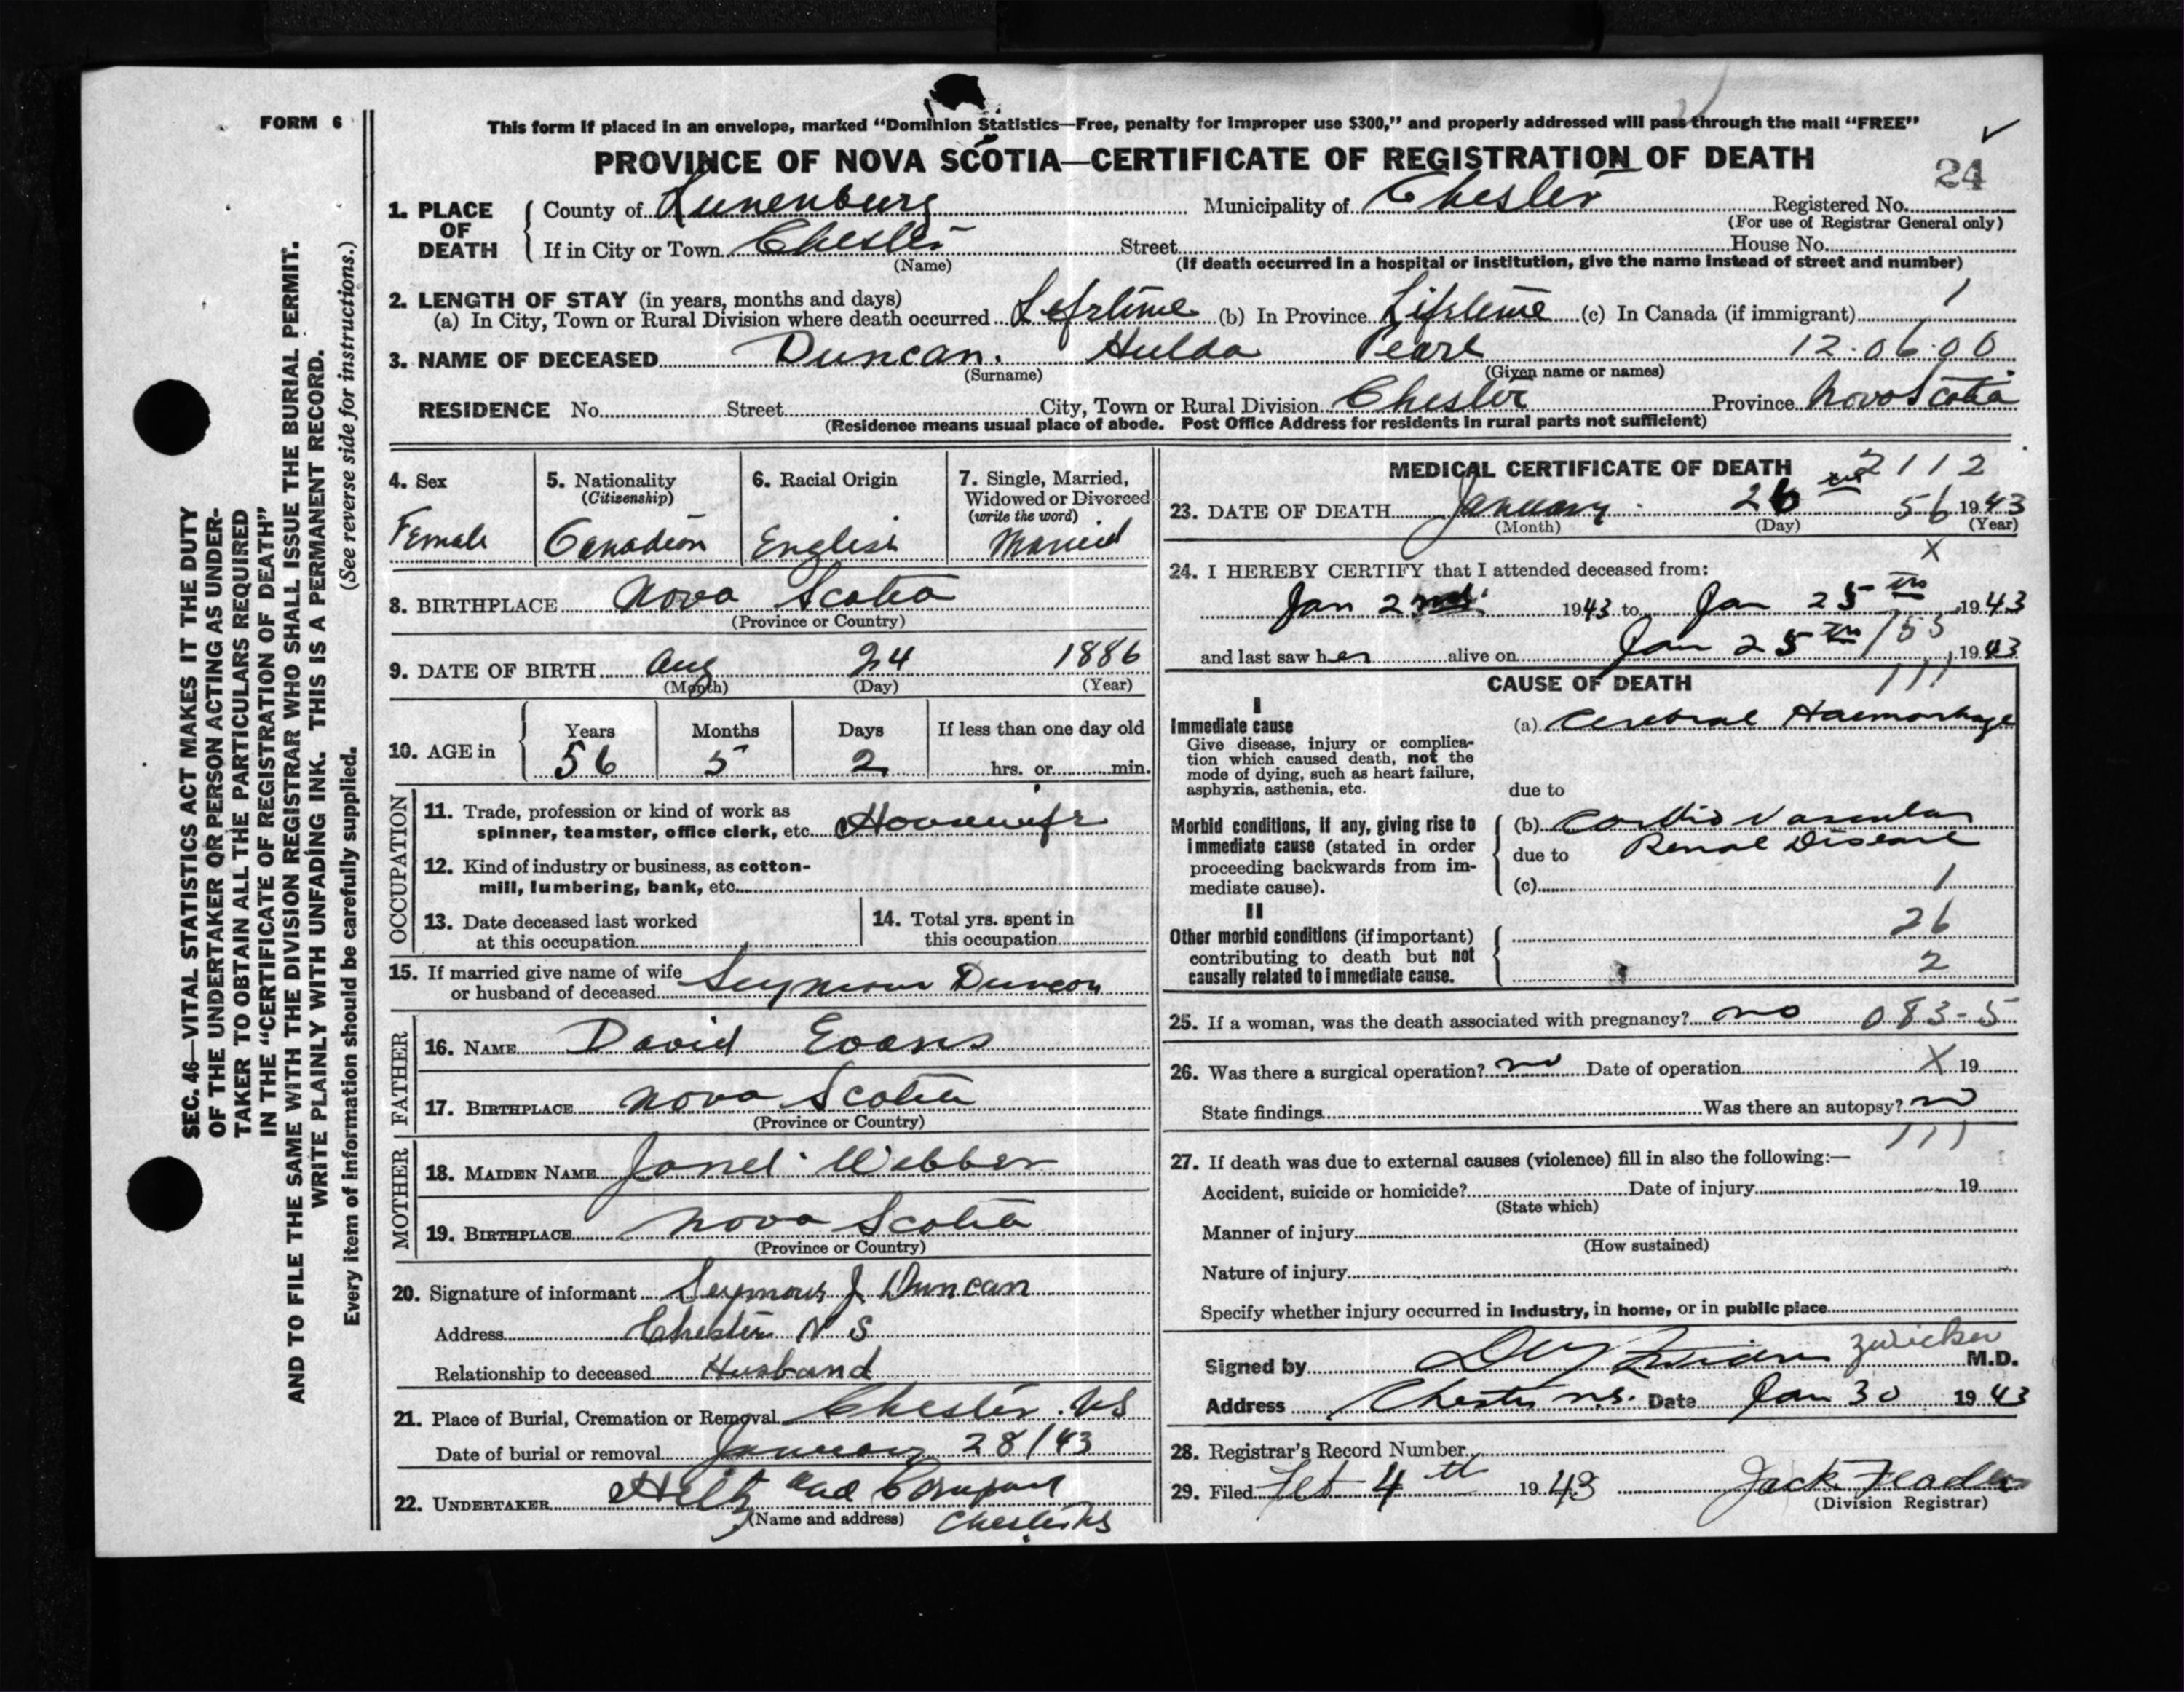 FORM 6
This form if placed in an envelope, marked "Dominion Statistics—Free, penalty for improper use $300," and properly addressed will pass through the mail "FREE"
PROVINCE OF NOVA SCOTIA—CERTIFICATE OF REGISTRATION OF DEATH
24
1. PLACE OF DEATH
County of Lunenburg Municipality of Chester Registered No.
(For use of Registrar General only)
If in City or Town Chester Street House No.
(Name) (If death occurred in a hospital or institution, give the name instead of street and number)
2. LENGTH OF STAY (in years, months and days)
(a) In City, Town or Rural Division where death occurred Lifetime (b) In Province Lifetime (c) In Canada (if immigrant) 1
3. NAME OF DECEASED Duncan. Hulda Pearl 12.06.00
(Surname) (Given name or names)
RESIDENCE No. Street City, Town or Rural Division Chester Province Nova Scotia
(Residence means usual place of abode. Post Office Address for residents in rural parts not sufficient)
4. Sex Female
5. Nationality (Citizenship) Canadian
6. Racial Origin English
7. Single, Married, Widowed or Divorced (write the word) Married
8. BIRTHPLACE Nova Scotia
(Province or Country)
9. DATE OF BIRTH Aug 24 1886
(Month) (Day) (Year)
10. AGE in Years 56 Months 5 Days 2 If less than one day old hrs. or min.
OCCUPATION
11. Trade, profession or kind of work as
spinner, teamster, office clerk, etc. Housewife
12. Kind of industry or business, as cotton-
mill, lumbering, bank, etc.
13. Date deceased last worked
at this occupation
14. Total yrs. spent in
this occupation
15. If married give name of wife
or husband of deceased Seymour Duncan
FATHER
16. NAME David Evans
17. BIRTHPLACE Nova Scotia
(Province or Country)
MOTHER
18. MAIDEN NAME Janet Webber
19. BIRTHPLACE Nova Scotia
(Province or Country)
20. Signature of informant Seymour J Duncan
Address Chester N S
Relationship to deceased Husband
21. Place of Burial, Cremation or Removal Chester. NS
Date of burial or removal January 28/43
22. UNDERTAKER Hiltz and Company
(Name and address) Chester NS
MEDICAL CERTIFICATE OF DEATH 2112
23. DATE OF DEATH January 26 56 1943
(Month) (Day) (Year)
X
24. I HEREBY CERTIFY that I attended deceased from:
Jan 2nd 1943 to Jan 25th 1943
and last saw her alive on Jan 25th 1943
CAUSE OF DEATH 111
I
Immediate cause
Give disease, injury or complica-
tion which caused death, not the
mode of dying, such as heart failure,
asphyxia, asthenia, etc.
(a) Cerebral Haemorhage
due to
Morbid conditions, if any, giving rise to
immediate cause (stated in order
proceeding backwards from im-
mediate cause).
(b) Cardio Vascular
due to Renal Disease
(c) 1
II
Other morbid conditions (if important)
contributing to death but not
causally related to immediate cause.
26
2
25. If a woman, was the death associated with pregnancy? no 083-5
26. Was there a surgical operation? no Date of operation X 19
State findings Was there an autopsy? no
111
27. If death was due to external causes (violence) fill in also the following:—
Accident, suicide or homicide? Date of injury 19
(State which)
Manner of injury
(How sustained)
Nature of injury
Specify whether injury occurred in industry, in home, or in public place
Signed by Zwicker M.D.
Address Chester N.S. Date Jan 30 1943
28. Registrar's Record Number
29. Filed Feb 4th 1943 Jack
(Division Registrar)
SEC. 46—VITAL STATISTICS ACT MAKES IT THE DUTY
OF THE UNDERTAKER OR PERSON ACTING AS UNDER-
TAKER TO OBTAIN ALL THE PARTICULARS REQUIRED
IN THE "CERTIFICATE OF REGISTRATION OF DEATH"
AND TO FILE THE SAME WITH THE DIVISION REGISTRAR WHO SHALL ISSUE THE BURIAL PERMIT.
WRITE PLAINLY WITH UNFADING INK. THIS IS A PERMANENT RECORD.
Every item of information should be carefully supplied. (See reverse side for instructions.)